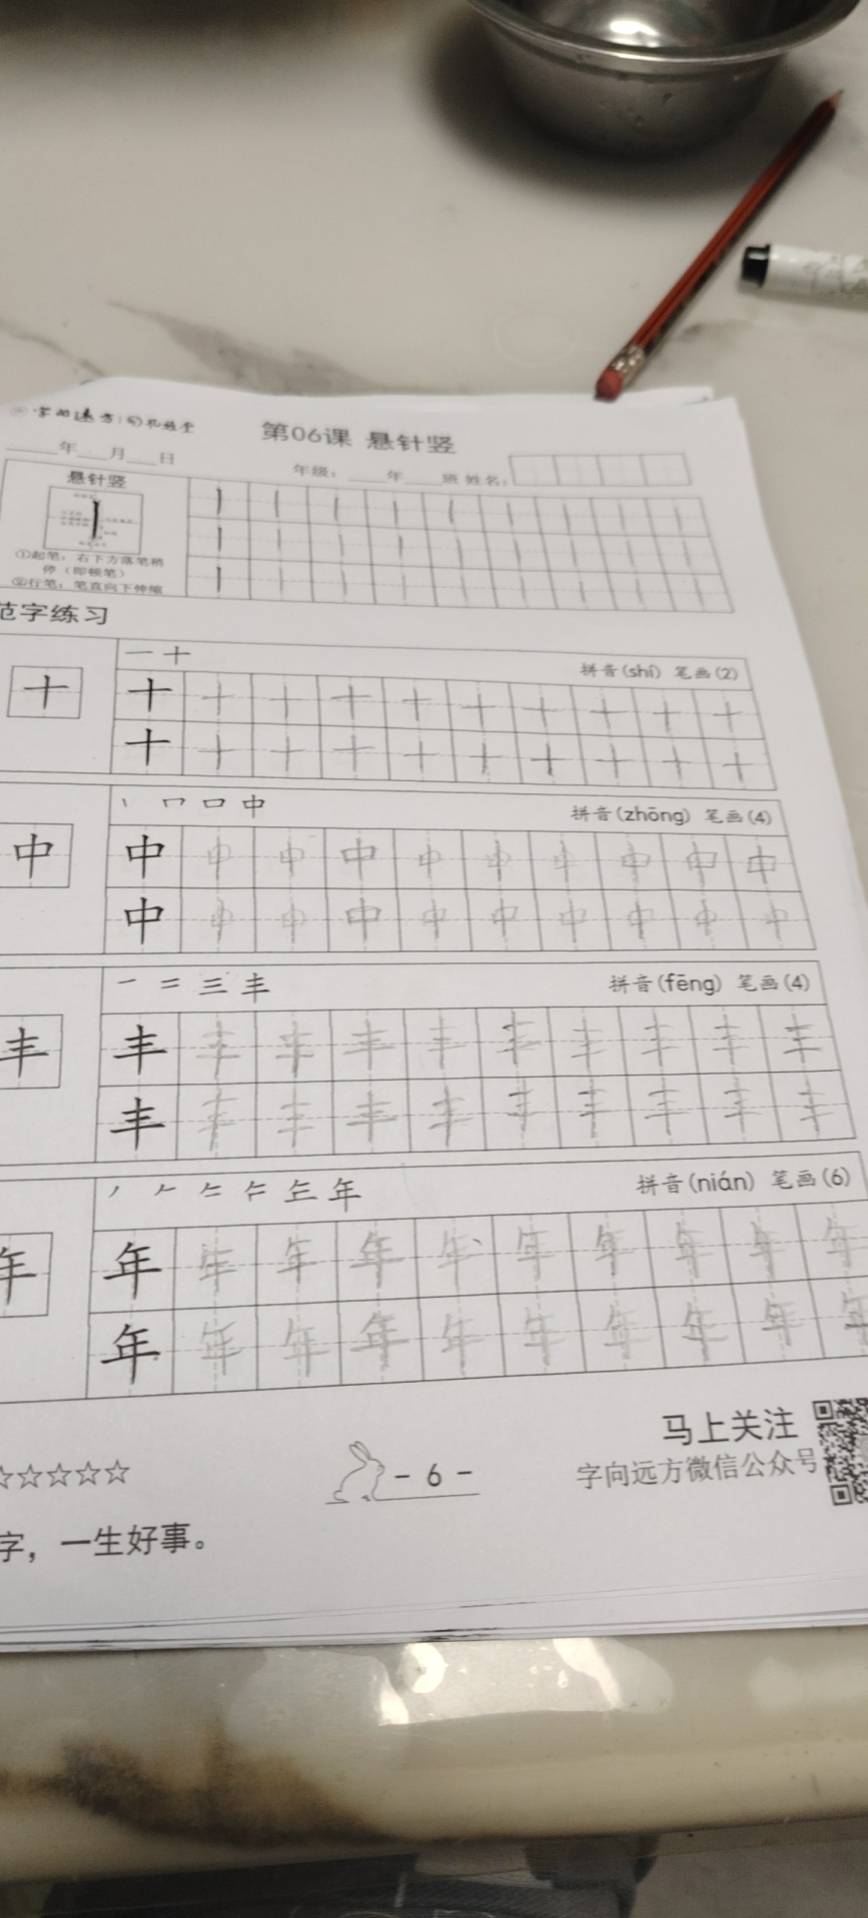 第06课 悬针竖
年 月 日
年级: 年 班 姓名:
悬针竖
①起笔:右下方落笔稍
停(即顿笔)
②行笔:笔直向下伸缩
范字练习
一 十
拼音(shí) 笔画(2)
十 十 十 十 十 十 十 十 十 十 十
十 十 十 十 十 十 十 十 十 十
丨 冖 口 中
拼音(zhōng) 笔画(4)
中 中 中 中 中 中 中 中 中 中 中
中 中 中 中 中 中 中 中 中 中
一 二 三 丰
拼音(fēng) 笔画(4)
丰 丰 丰 丰 丰 丰 丰 丰 丰 丰 丰
丰 丰 丰 丰 丰 丰 丰 丰 丰 丰
年
拼音(nián) 笔画(6)
年 年 年 年 年 年 年 年 年 年 年
年 年 年 年 年 年 年 年 年 年
马上关注
☆☆☆☆☆
- 6 -
字向远方微信公众号
字,一生好事。